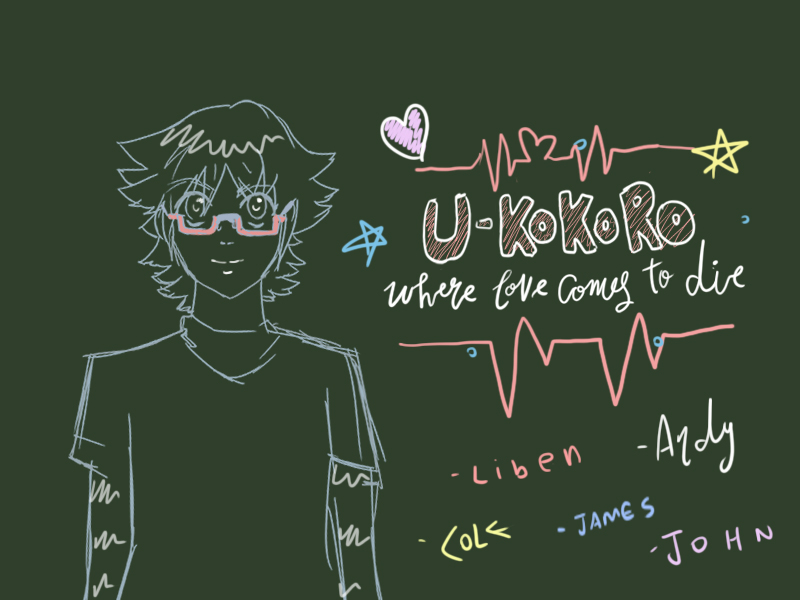 U-KoKoRo
where love comes to die
- Liben
- Andy
- COLE
- JAMES
- JOHN